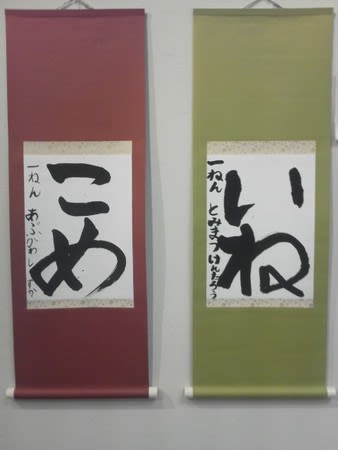 こめ
一ねん あぶかわしずか
いね
一ねん とみまつけんたろう